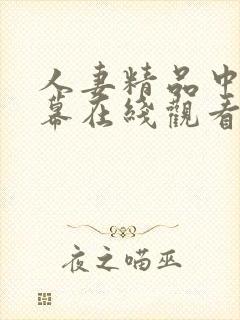 人妻精品中
幕在綫觀看
夜之喵巫